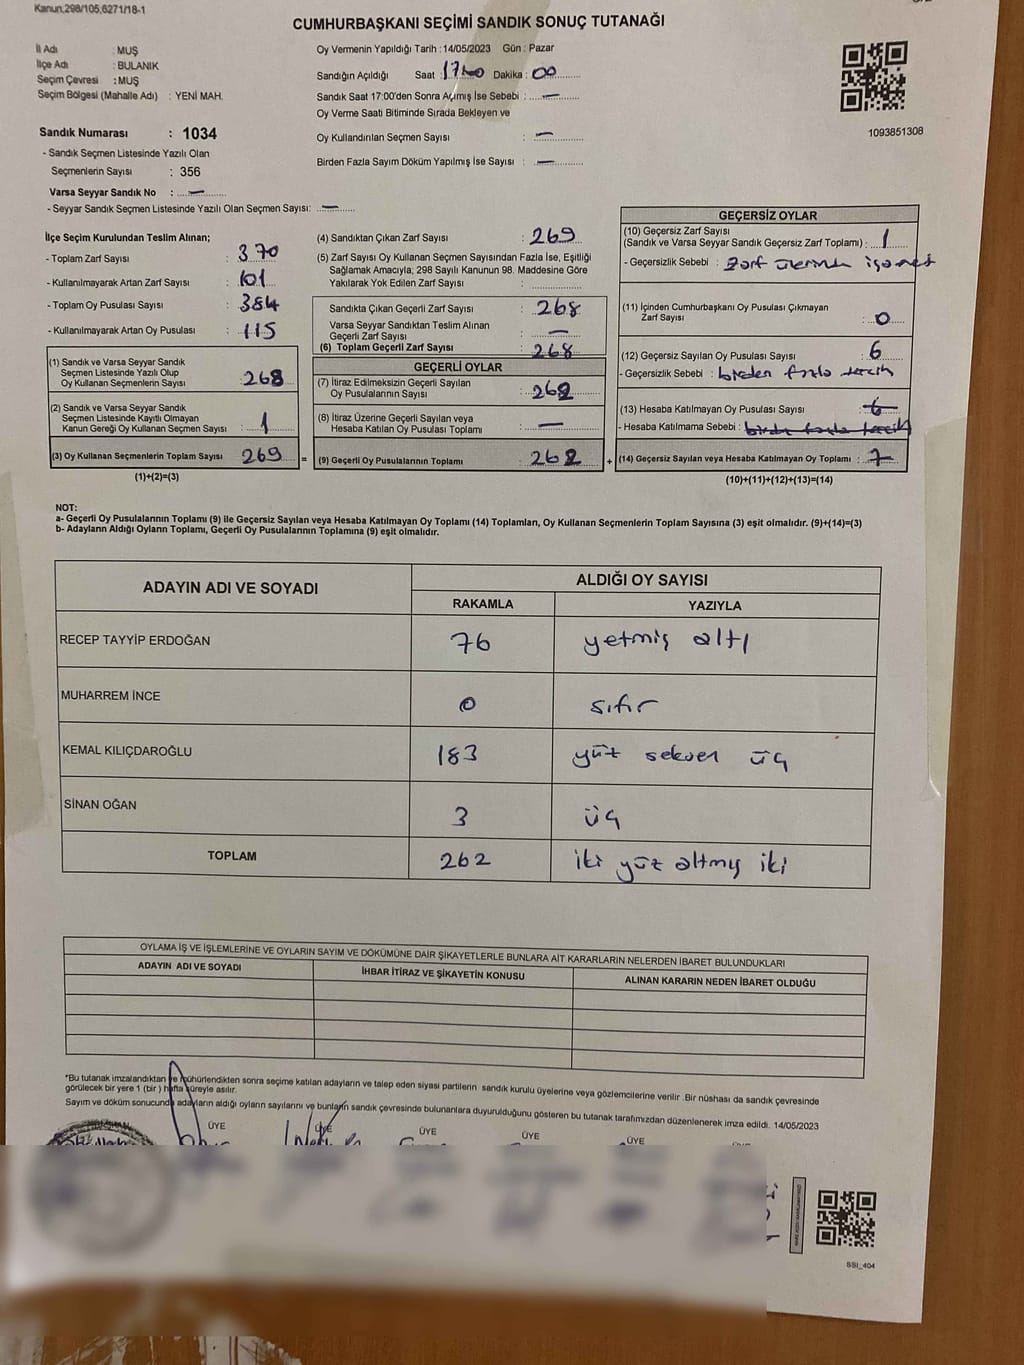 Kanun;298/105,6271/18-1
CUMHURBAŞKANI SEÇİMİ SANDIK SONUÇ TUTANAĞI
İl Adı : MUŞ
İlçe Adı : BULANIK
Seçim Çevresi : MUŞ
Seçim Bölgesi (Mahalle Adı) : YENİ MAH.
Sandık Numarası : 1034
- Sandık Seçmen Listesinde Yazılı Olan
Seçmenlerin Sayısı : 356
Varsa Seyyar Sandık No : —
- Seyyar Sandık Seçmen Listesinde Yazılı Olan Seçmen Sayısı: —
Oy Vermenin Yapıldığı Tarih : 14/05/2023 Gün : Pazar
Sandığın Açıldığı Saat : Dakika : 00
Sandık Saat 17:00'den Sonra Açılmış İse Sebebi : —
Oy Verme Saati Bitiminde Sırada Bekleyen ve
Oy Kullandırılan Seçmen Sayısı : —
Birden Fazla Sayım Döküm Yapılmış İse Sayısı : —
1093851308
İlçe Seçim Kurulundan Teslim Alınan;
- Toplam Zarf Sayısı : 370
- Kullanılmayarak Artan Zarf Sayısı : 101
- Toplam Oy Pusulası Sayısı : 384
- Kullanılmayarak Artan Oy Pusulası : 115
(1) Sandık ve Varsa Seyyar Sandık
Seçmen Listesinde Yazılı Olup
Oy Kullanan Seçmenlerin Sayısı : 268
(2) Sandık ve Varsa Seyyar Sandık
Seçmen Listesinde Kayıtlı Olmayan
Kanun Gereği Oy Kullanan Seçmen Sayısı : 1
(3) Oy Kullanan Seçmenlerin Toplam Sayısı 269
(1)+(2)=(3)
(4) Sandıktan Çıkan Zarf Sayısı : 269
(5) Zarf Sayısı Oy Kullanan Seçmen Sayısından Fazla İse, Eşitliği
Sağlamak Amacıyla; 298 Sayılı Kanunun 98. Maddesine Göre
Yakılarak Yok Edilen Zarf Sayısı :
Sandıkta Çıkan Geçerli Zarf Sayısı : 268
Varsa Seyyar Sandıktan Teslim Alınan
Geçerli Zarf Sayısı : —
(6) Toplam Geçerli Zarf Sayısı : 268
GEÇERLİ OYLAR
(7) İtiraz Edilmeksizin Geçerli Sayılan
Oy Pusulalarının Sayısı : 262
(8) İtiraz Üzerine Geçerli Sayılan veya
Hesaba Katılan Oy Pusulası Toplamı : —
= (9) Geçerli Oy Pusulalarının Toplamı : 262 +
GEÇERSİZ OYLAR
(10) Geçersiz Zarf Sayısı
(Sandık ve Varsa Seyyar Sandık Geçersiz Zarf Toplamı) : 1
- Geçersizlik Sebebi : Zarf üzerinde işaret
(11) İçinden Cumhurbaşkanı Oy Pusulası Çıkmayan
Zarf Sayısı : 0
(12) Geçersiz Sayılan Oy Pusulası Sayısı : 6
- Geçersizlik Sebebi : birden fazla tercih
(13) Hesaba Katılmayan Oy Pusulası Sayısı : 6
- Hesaba Katılmama Sebebi : birden fazla tercih
(14) Geçersiz Sayılan veya Hesaba Katılmayan Oy Toplamı : 7
(10)+(11)+(12)+(13)=(14)
NOT:
a- Geçerli Oy Pusulalarının Toplamı (9) ile Geçersiz Sayılan veya Hesaba Katılmayan Oy Toplamı (14) Toplamları, Oy Kullanan Seçmenlerin Toplam Sayısına (3) eşit olmalıdır. (9)+(14)=(3)
b- Adayların Aldığı Oyların Toplamı, Geçerli Oy Pusulalarının Toplamına (9) eşit olmalıdır.
ADAYIN ADI VE SOYADI
ALDIĞI OY SAYISI
RAKAMLA YAZIYLA
RECEP TAYYİP ERDOĞAN 76 yetmiş altı
MUHARREM İNCE 0 sıfır
KEMAL KILIÇDAROĞLU 183 yüz seksen üç
SİNAN OĞAN 3 üç
TOPLAM 262 iki yüz altmış iki
OYLAMA İŞ VE İŞLEMLERİNE VE OYLARIN SAYIM VE DÖKÜMÜNE DAİR ŞİKAYETLERLE BUNLARA AİT KARARLARIN NELERDEN İBARET BULUNDUKLARI
ADAYIN ADI VE SOYADI İHBAR İTİRAZ VE ŞİKAYETİN KONUSU ALINAN KARARIN NEDEN İBARET OLDUĞU
*Bu tutanak imzalandıktan ve mühürlendikten sonra seçime katılan adayların ve talep eden siyasi partilerin sandık kurulu üyelerine veya gözlemcilerine verilir .Bir nüshası da sandık çevresinde
görülecek bir yere 1 (bir ) hafta süreyle asılır.
Sayım ve döküm sonucunda adayların aldığı oyların sayılarını ve bunların sandık çevresinde bulunanlara duyurulduğunu gösteren bu tutanak tarafımızdan düzenlenerek imza edildi. 14/05/2023
ÜYE ÜYE ÜYE ÜYE ÜYE
SSI_404